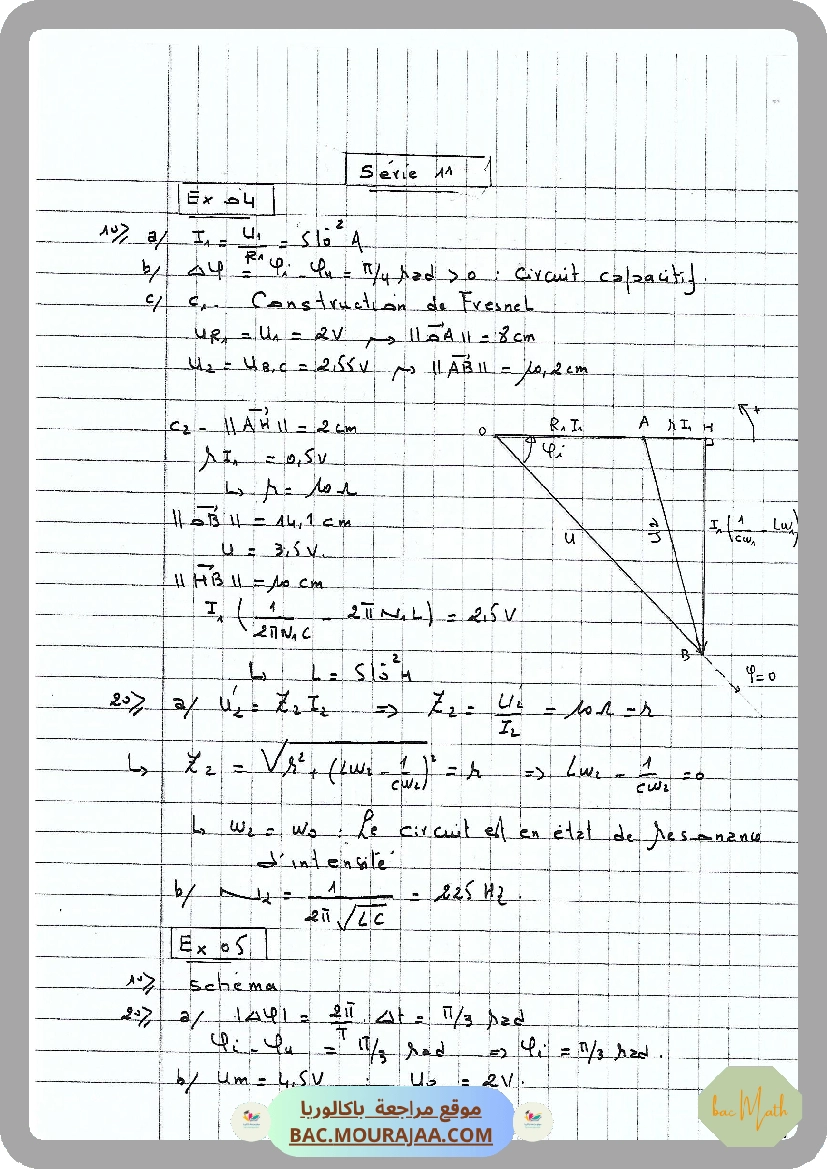 Série 11
Ex 04
1°/ a/ I₁ = U₁/R₁ = 5 10⁻² A
b/ Δφ = φi - φu = π/4 rad > 0 : Circuit capacitif.
c/ c₁- Construction de Fresnel
UR₁ = U₁ = 2V ⇝ ||OA|| = 8 cm
U₂ = UB,C = 2,55V ⇝ ||AB|| = 10,2 cm
c₂ - ||AH|| = 2 cm
r I₁ = 0,5 V
↳ r = 10 Ω
||OB|| = 14,1 cm
U = 3,5 V.
||HB|| = 10 cm
I₁ (1/(2πN₁C) - 2πN₁L) = 2,5 V
↳ L = 5 10⁻² H
O R₁I₁ A rI₁ H +
φi
U U₂ I₁(1/(Cω₁) - Lω₁)
B
φ=0
2°/ a/ U'₂ = Z₂ I₂ ⇒ Z₂ = U'₂/I₂ = 10 Ω = r
↳ Z₂ = √(r² + (Lω₂ - 1/(Cω₂))²) = r ⇒ Lω₂ - 1/(Cω₂) = 0
↳ ω₂ = ω₀ : Le circuit est en état de résonance
d'intensité
b/ N₂ = 1/(2π√(LC)) = 225 Hz.
Ex 05
1°/ Schéma
2°/ a/ |Δφ| = 2π/T . Δt = π/3 rad
φi - φu = π/3 rad ⇒ φi = π/3 rad.
b/ Um = 4,5V ; U₀ = 2V.
موقع مراجعة باكالوريا
BAC.MOURAJAA.COM
bac Math